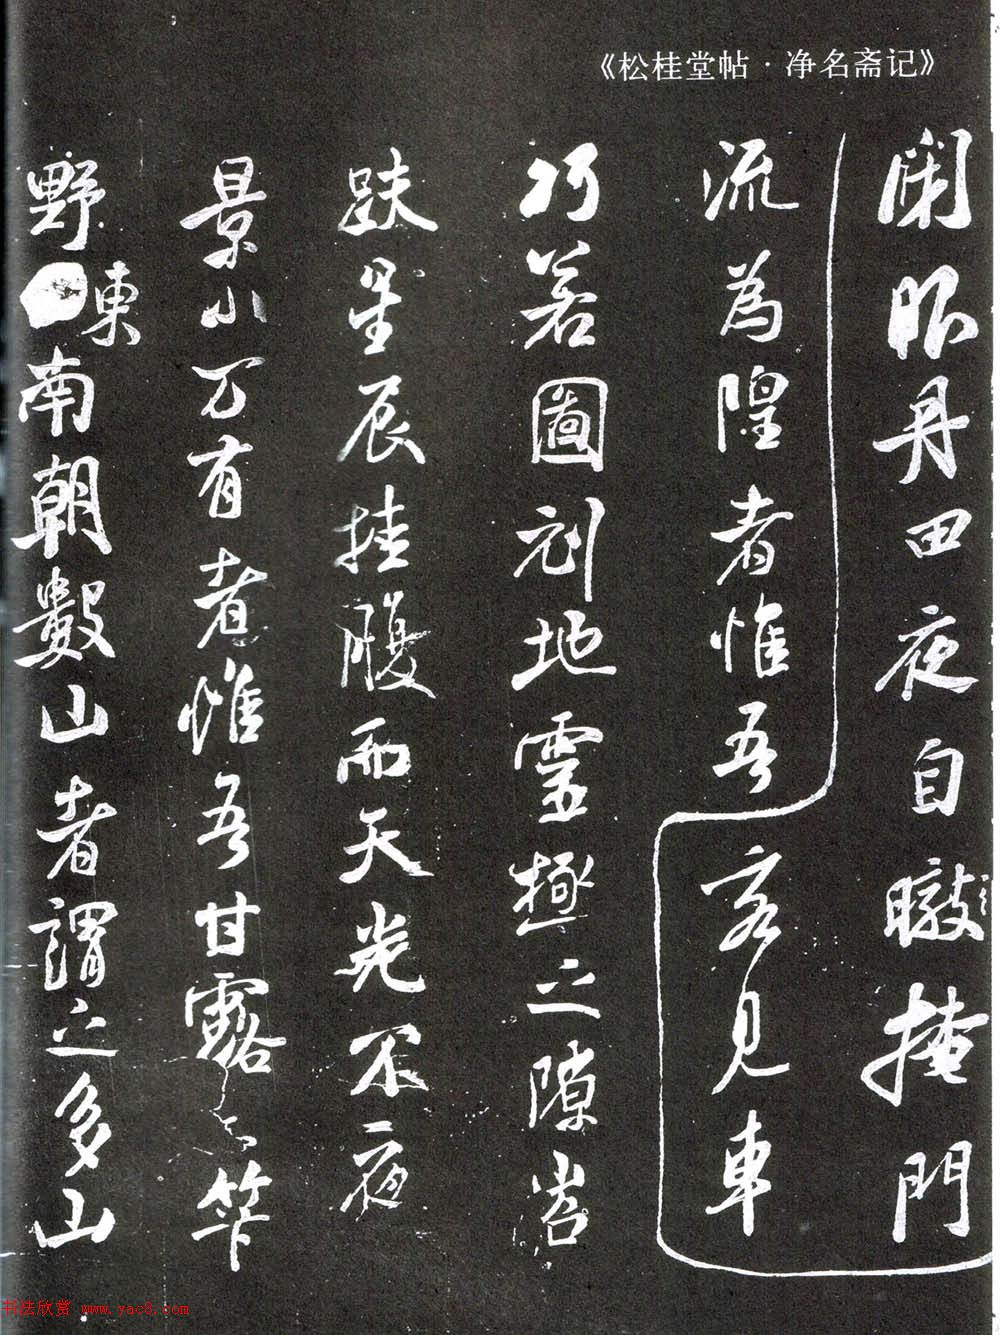 《松桂堂帖·净名斋记》
闲眠丹田夜自暾掩門
流為隍者惟吾客見車
巧若圖刻地靈極之隙岩
趺星辰挂腹而天光不夜
景小万有者惟吾甘露
野東南朝數山者謂之多山
书法欣赏 www.yac8.com